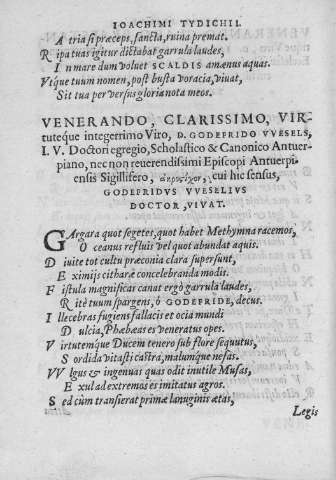 IOACHIMI TYDICHII.
A tria si præceps, sancta, ruina premat.
R ipa tuas igitur dictabat garrula laudes,
I n mare dum voluet SCALDIS amænus aquas.
V tque tuum nomen, post busta voracia, viuat,
Sit tua per versus gloria nota meos.
VENERANDO, CLARISSIMO, VIR-
tuteque integerrimo Viro, D. GODEFRIDO VVESELS,
I. V. Doctori egregio, Scholastico & Canonico Antuer-
piano, nec non reuerendissimi Episcopi Antuerpi-
ensis Sigillifero, cui hic sensus,
GODEFRIDVS VVESELIVS
DOCTOR, VIVAT.
GArgara quot segetes, quot habet Methymna racemos,
O ceanus refluis vel quot abundat aquis.
D iuite tot cultu præconia clara supersunt,
E ximijs citharæ concelebranda modis.
F istula magnificas canat ergò garrula laudes,
R itè tuum spargens, ô GODEFRIDE, decus.
I llecebras fugiens fallacis et ocia mundi
D ulcia, Phæbæas es veneratus opes.
V irtutemque Ducem tenero sub flore sequutus,
S ordida vitasti castra, malumque nefas.
VV lgus & ingenuas quas odit inutile Musas,
E xul ad extremos es imitatus agros.
S ed cùm transierat primæ lanuginis ætas,
Legis